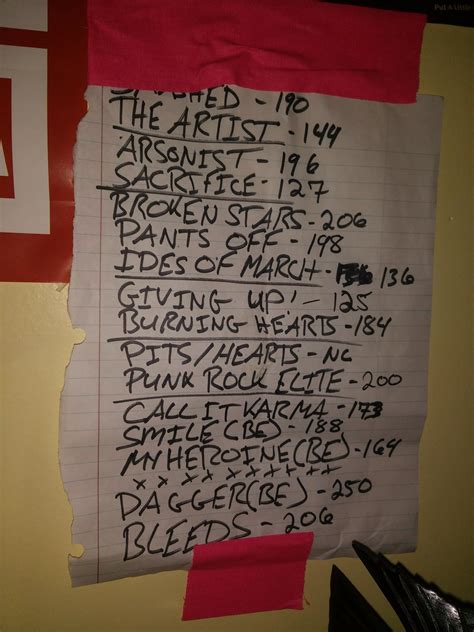 - 190
THE ARTIST - 144
ARSONIST - 196
SACRIFICE - 127
BROKEN STARS - 206
PANTS OFF - 198
IDES OF MARCH - 136
GIVING UP! - 125
BURNING HEARTS - 184
PITS/HEARTS - NC
PUNK ROCK ELITE - 200
CALL IT KARMA - 173
SMILE (BE) - 188
MY HEROINE (BE) - 164
x x x x x x x x x
DAGGER (BE) - 250
BLEEDS - 206